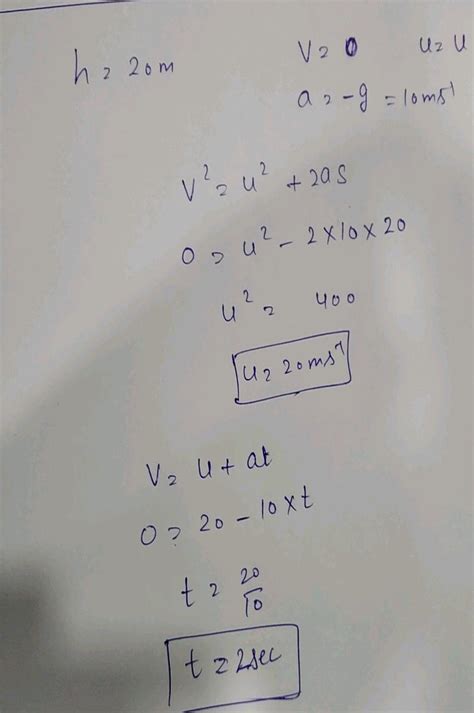 h = 20m V = 0 u = u
a = -g = 10ms¹
V² = u² + 2as
0 = u² - 2×10×20
u² = 400
u = 20ms⁻¹
V = u + at
0 = 20 - 10×t
t = 20/10
t = 2sec